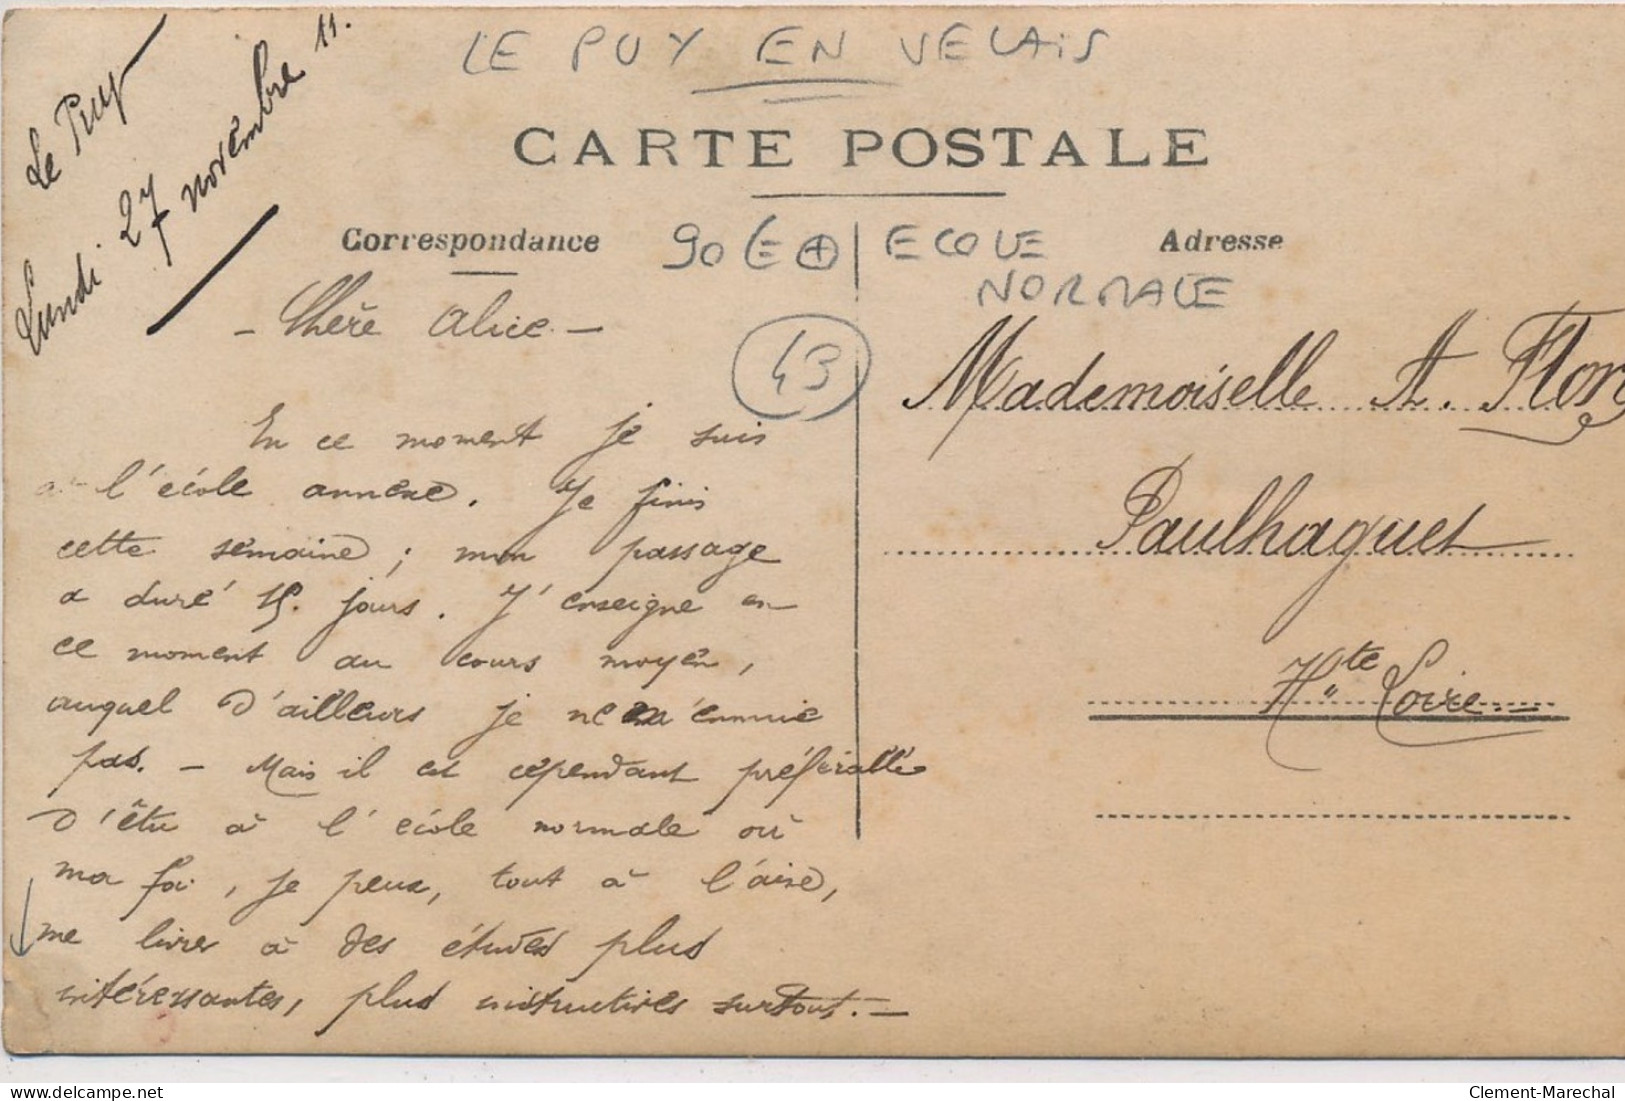 Le Puy
Lundi 27 novembre 11.
LE PUY EN VELAIS
CARTE POSTALE
Correspondance
90 E
ECOLE
NORMALE
Adresse
43
- Chère Alice -
En ce moment je suis
à l'école annexe. Je finis
cette semaine ; mon passage
a duré 15. jours. J'enseigne en
ce moment au cours moyen,
auquel d'ailleurs je ne m'ennuie
pas. - Mais il est cependant préférable
d'être à l'école normale où
ma foi, je peux, tout à l'aise,
me livrer à des études plus
intéressantes, plus instructives surtout. -
Mademoiselle A. Flory
Paulhaguet
Hte Loire
delcampe.net
Clement-Marechal